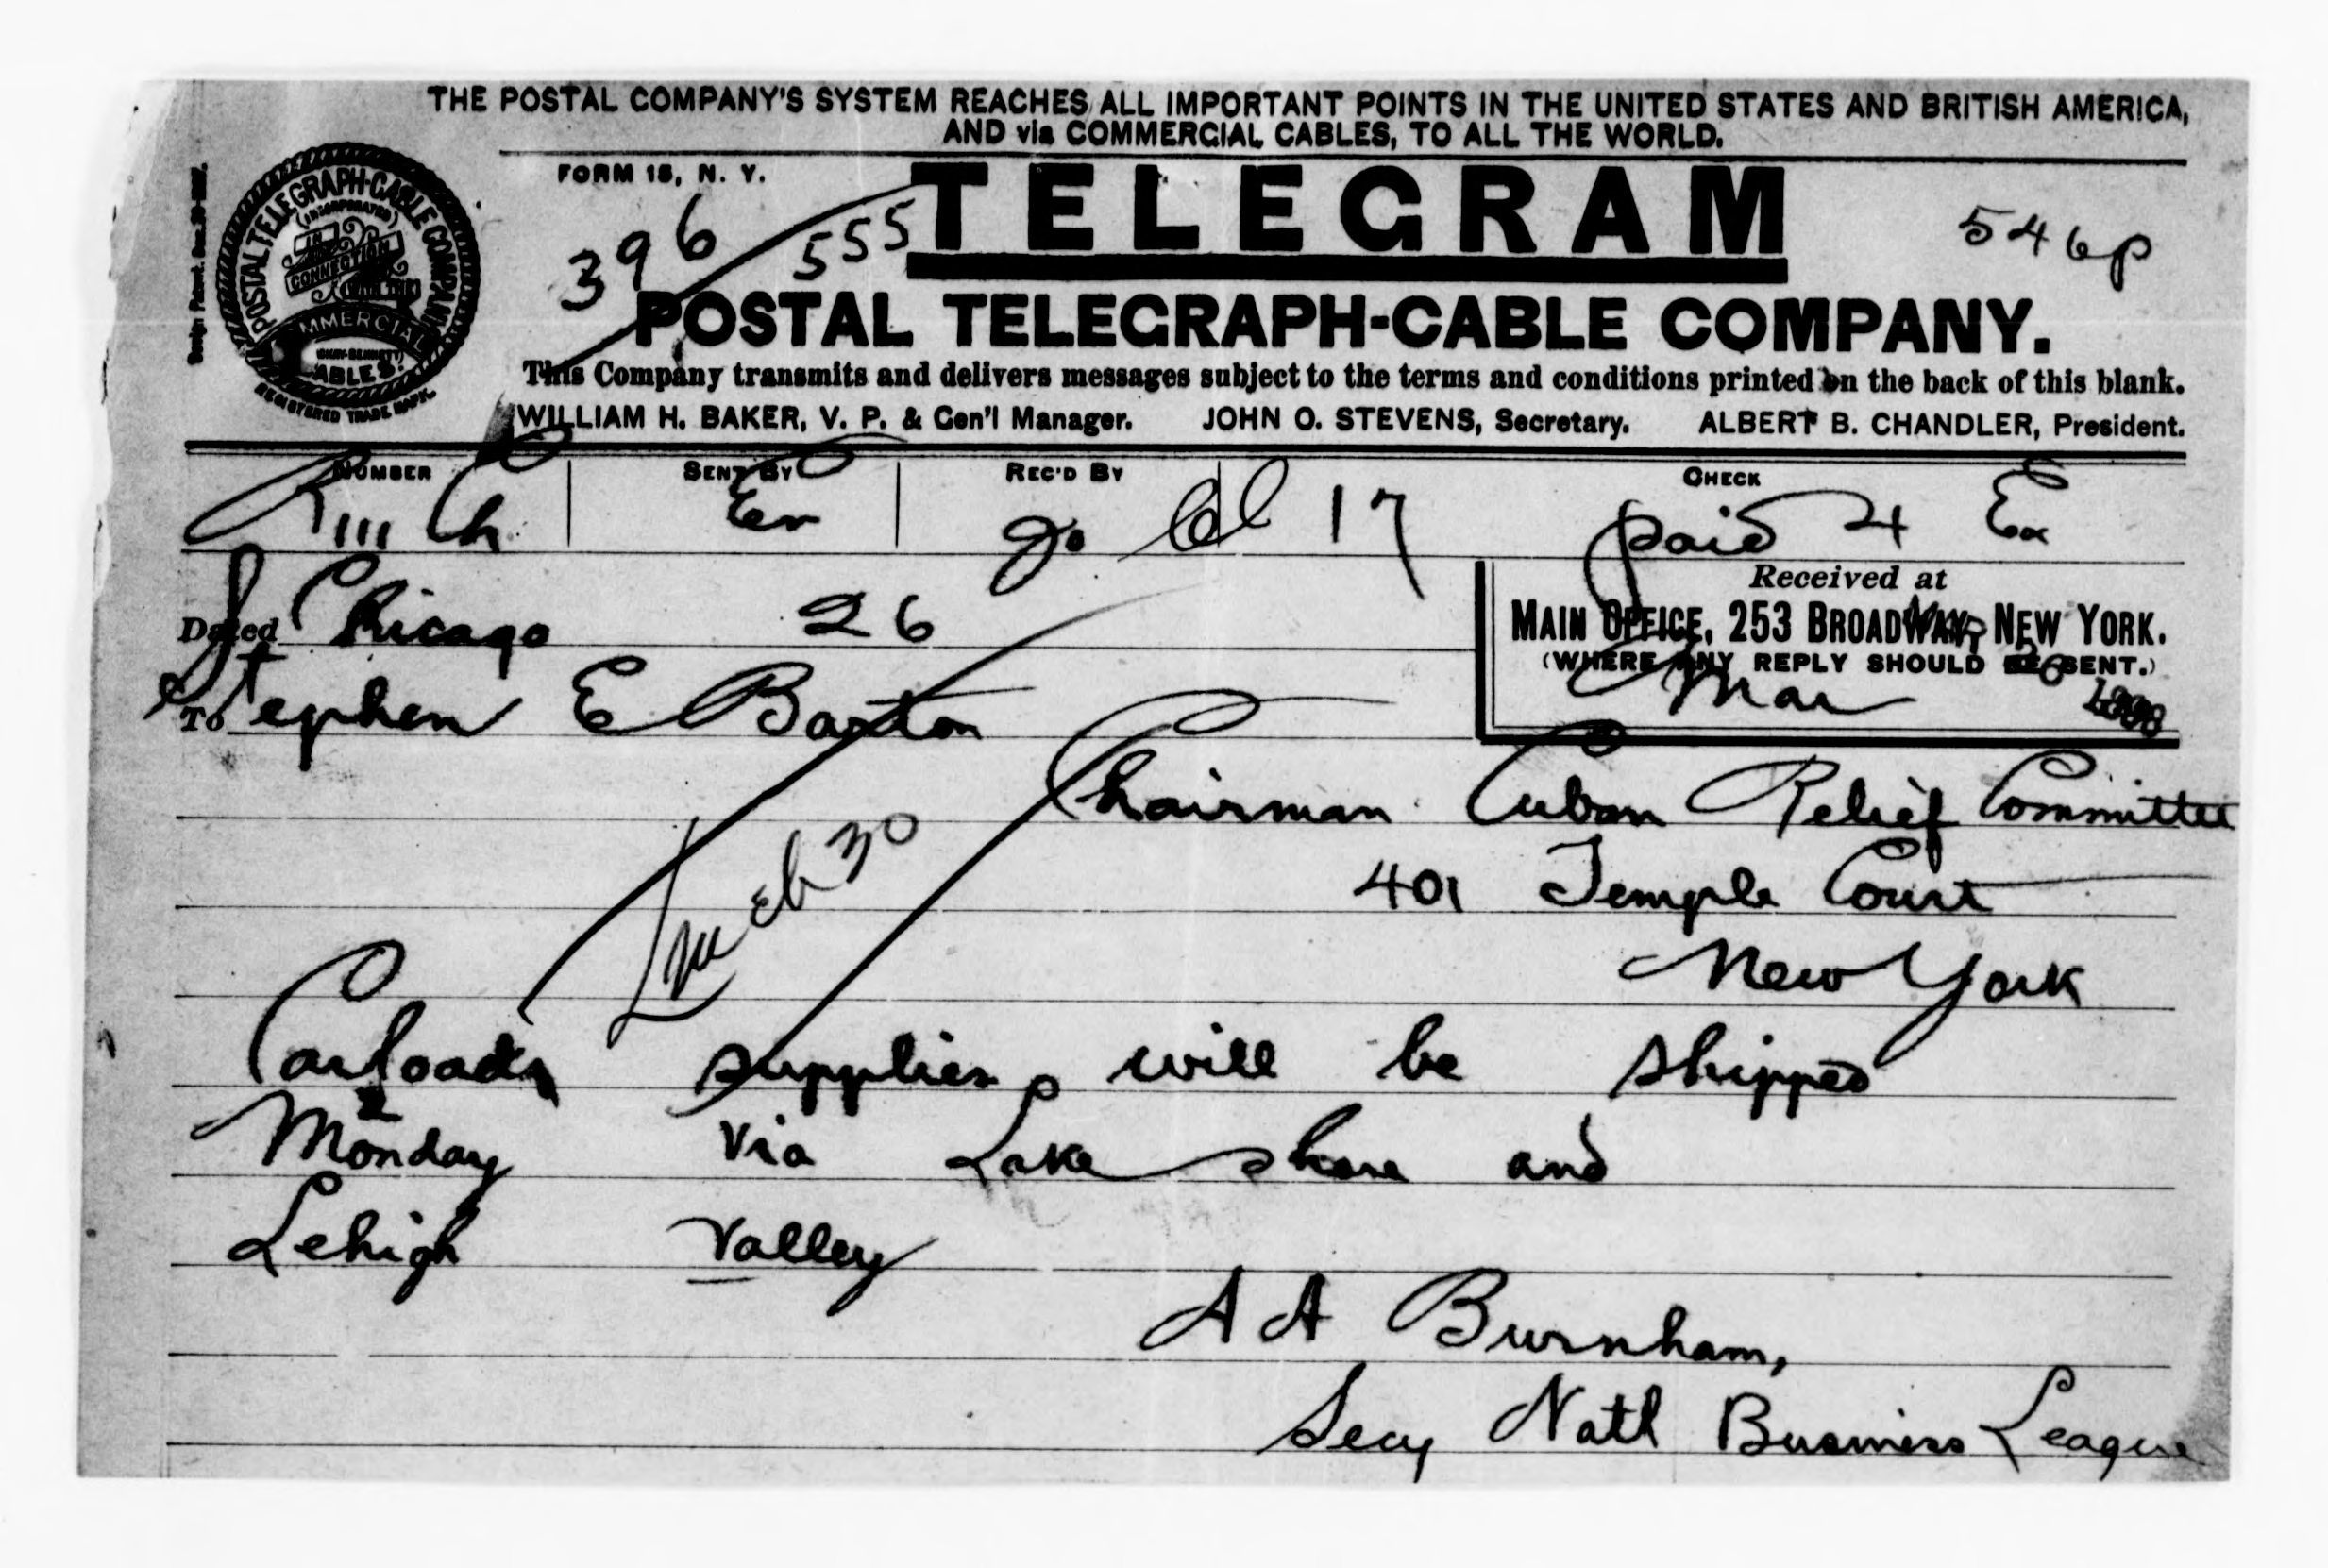 THE POSTAL COMPANY'S SYSTEM REACHES ALL IMPORTANT POINTS IN THE UNITED STATES AND BRITISH AMERICA,
AND via COMMERCIAL CABLES, TO ALL THE WORLD.
FORM 15, N. Y.
POSTAL TELEGRAPH-CABLE COMPANY
(INCORPORATED)
IN
CONNECTION
WITH THE
COMMERCIAL
CABLES.
REGISTERED TRADE MARK.
396 555
TELEGRAM
546p
POSTAL TELEGRAPH-CABLE COMPANY.
This Company transmits and delivers messages subject to the terms and conditions printed on the back of this blank.
WILLIAM H. BAKER, V. P. & Gen'l Manager. JOHN O. STEVENS, Secretary. ALBERT B. CHANDLER, President.
NUMBER SENT BY REC'D BY CHECK
17 paid 4 Ex
Received at
MAIN OFFICE, 253 BROADWAY, NEW YORK.
(WHERE ANY REPLY SHOULD BE SENT.)
Mar 26
Dated Chicago 26
To Stephen E Barton
Chairman Cuban Relief Committee
401 Temple Court
New York
Mch 30
Carloads supplies will be shipped
Monday via Lake shore and
Lehigh Valley
A A Burnham,
Secy Natl Business League